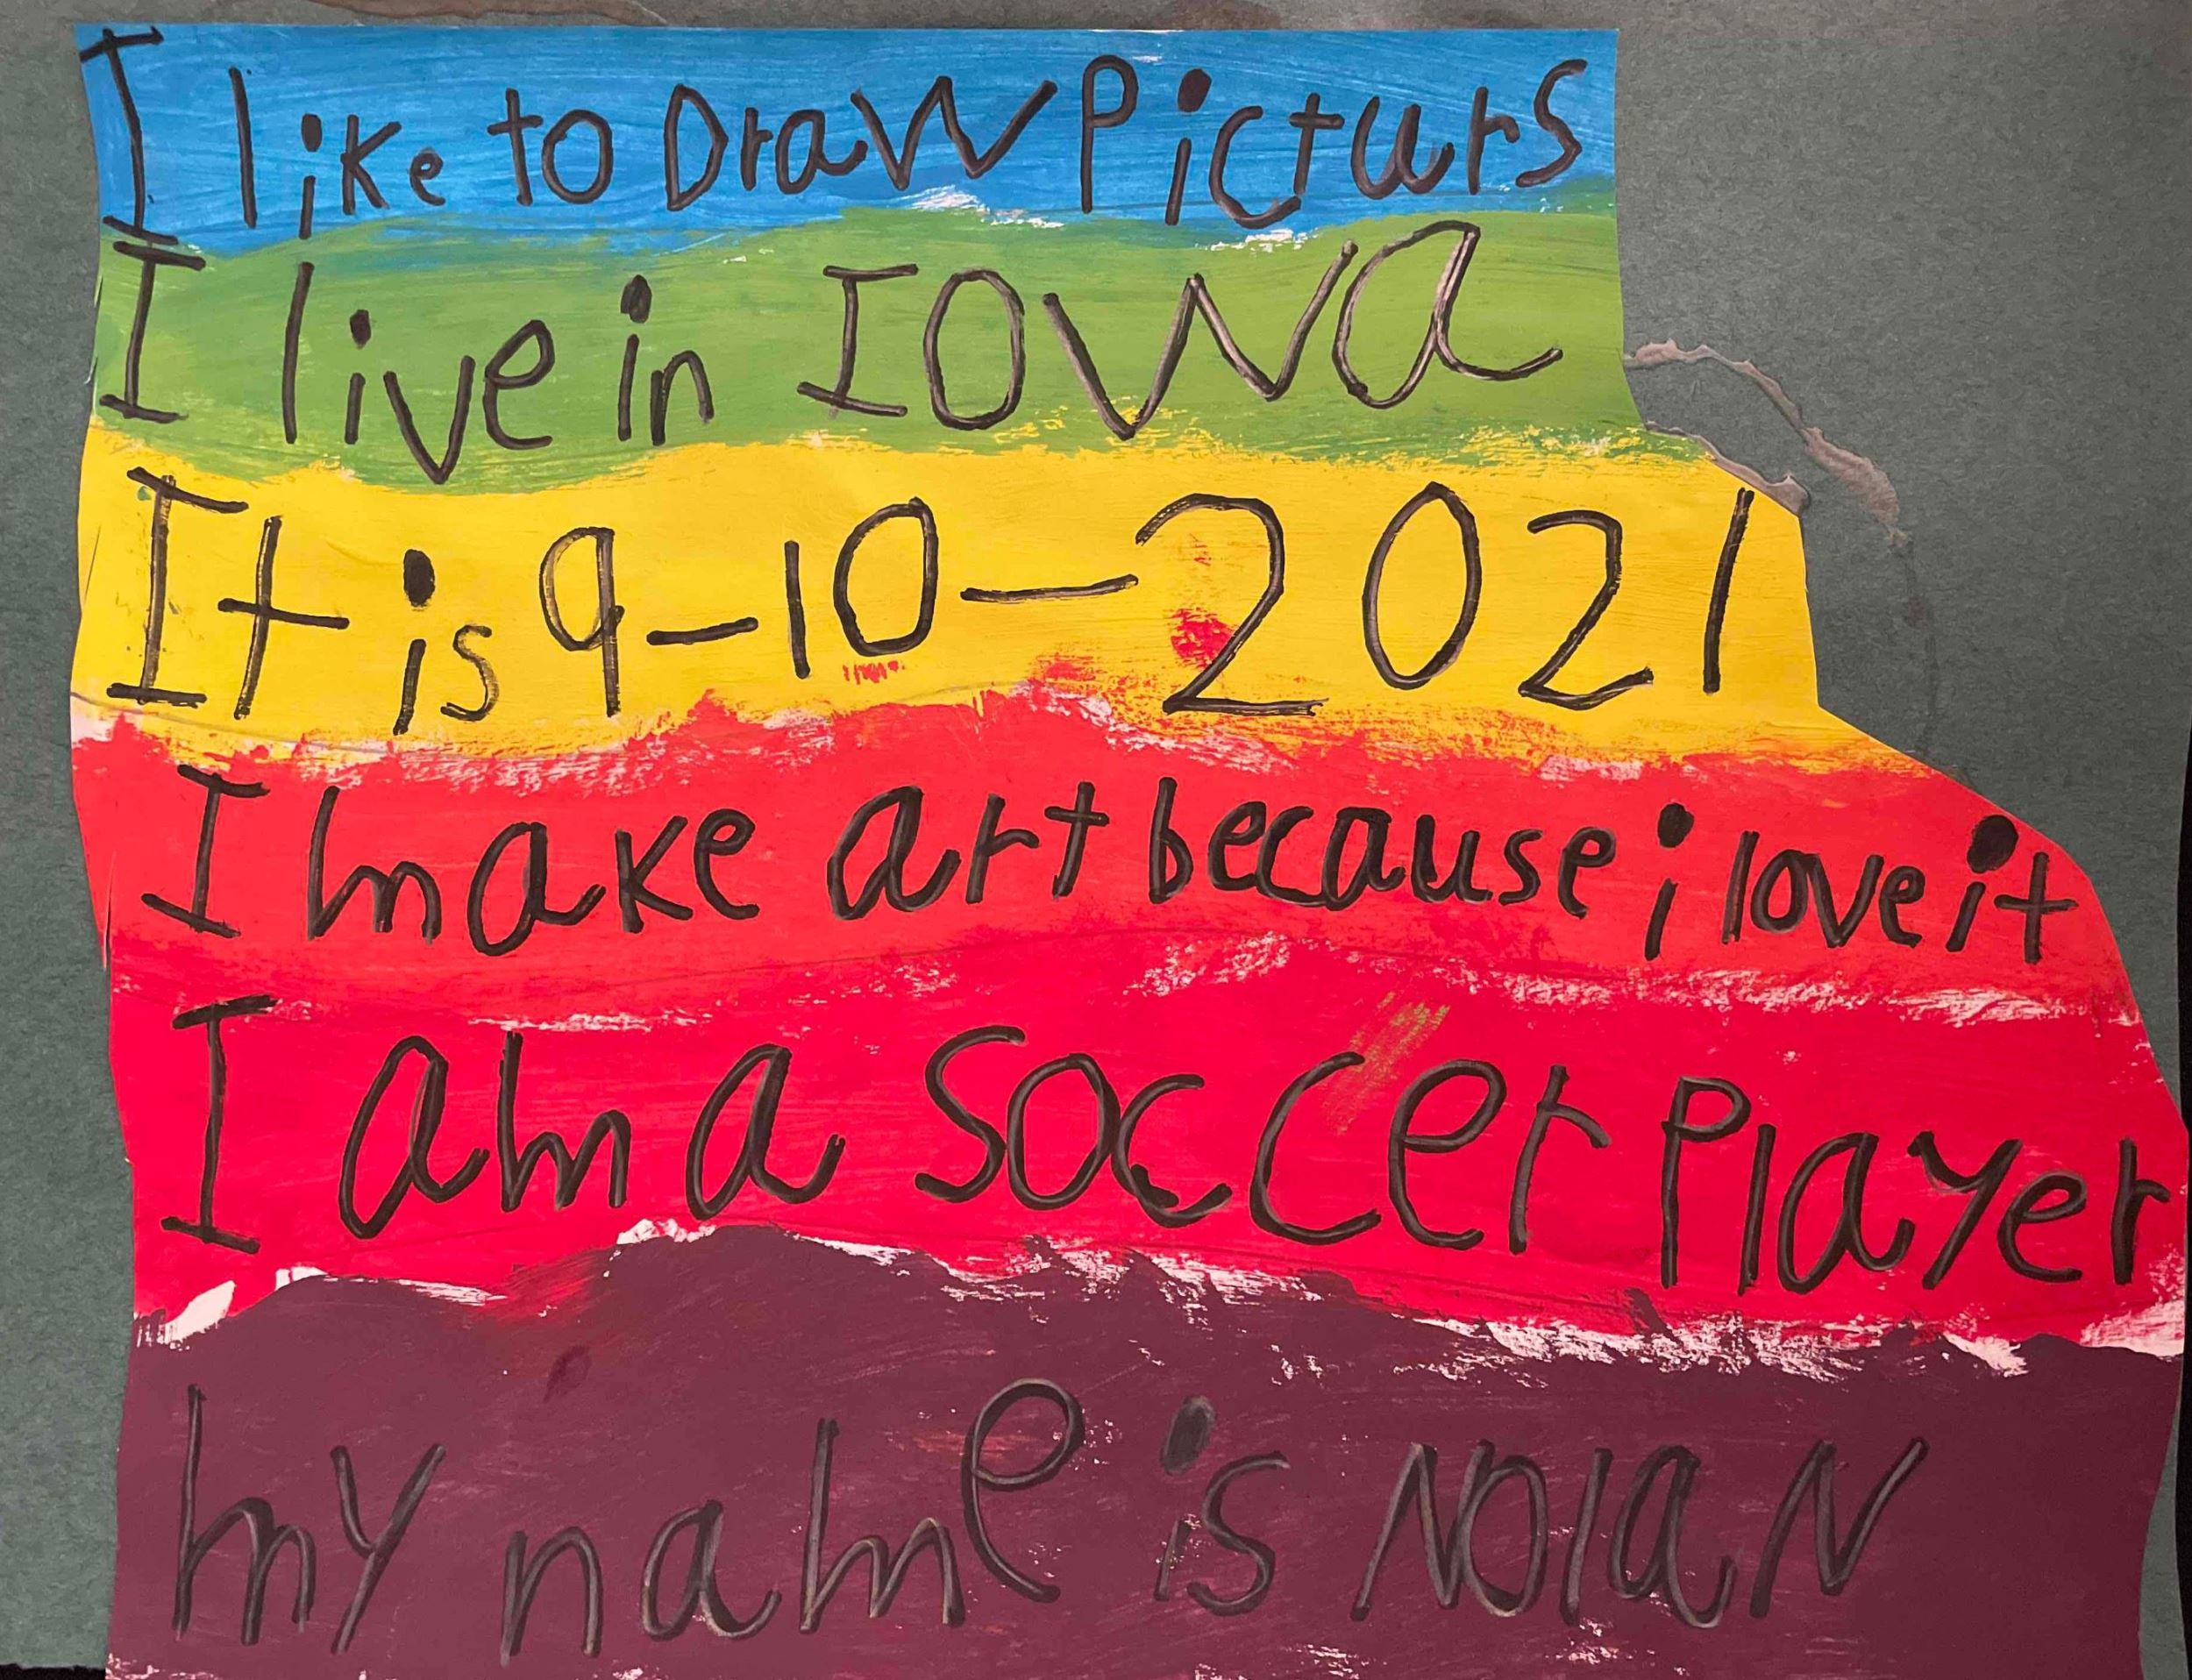 I like to Draw Picturs
I live in IOWa
It is 9-10-2021
I make art because i love it
I am a soccer Player
my name is NolaN